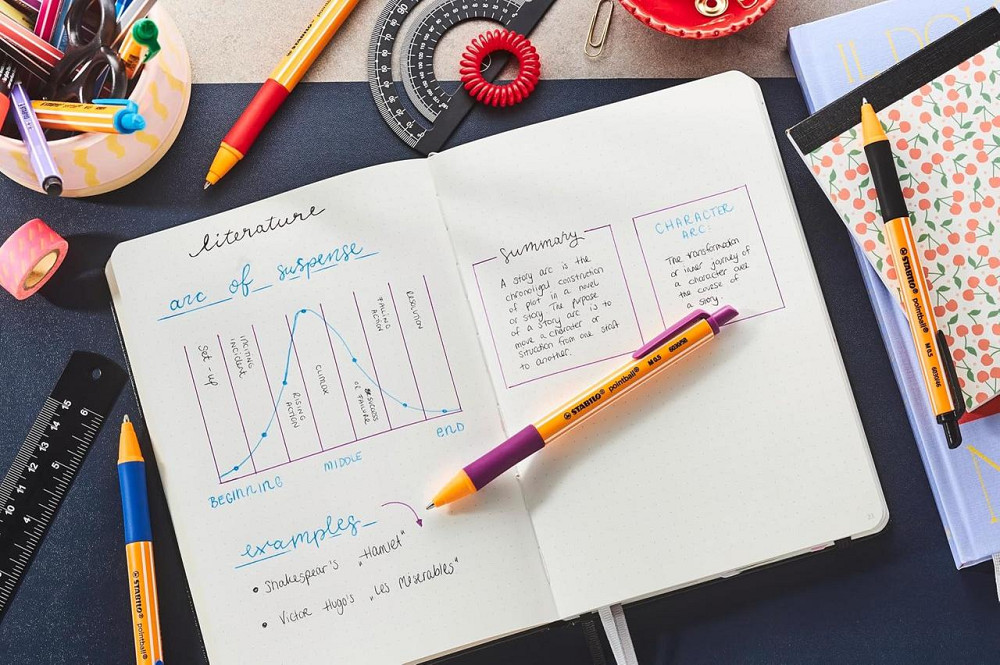 literature
arc of suspense
Set-up
INCITING
incident
RISING
ACTION
CLIMAX
SUCCESS
OF FAILURE
FALLING
ACTION
RESOLUTION
BEGINNING
MIDDLE
END
examples
• Shakespear's „Hamlet"
• Victor Hugo's „Les Miserables"
Summary
A story arc is the
chronoligal construction
of plot in a novel
or story. The pupose
of a story arc is to
move a character or
situation from one start
to another.
CHARACTER
ARC:
The transformation
or inner journey of
a character over
the course of
a story.
STABILO pointball M 0,5
STABILO pointball M 0,5
STABILO pointball
15 14 13 12 11 10
6 5 4